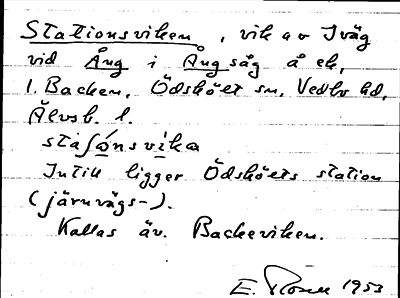 Stationsviken, vik av Iväg
vid Ång i Ångsåg å ek,
l. Backen, Ödsköət sn, Vedbo hd,
Älvsb. l.
staʃónsvíka
Intill ligger Ödsköəts station
(järnvägs-).
Kallas äv. Backeviken.
E. 1953